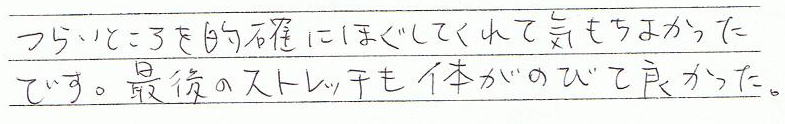 つらいところを的確にほぐしてくれて気もちよかった
です。最後のストレッチも体がのびて良かった。